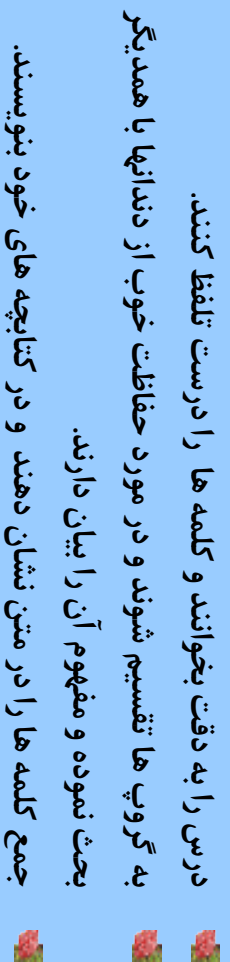 درس را به دقت بخوانند و کلمه ها را درست تلفظ کنند.
به گروپ ها تقسیم شوند و در مورد حفاظت خوب از دندانها با همدیگر
بحث نموده و مفهوم آن را بیان دارند.
جمع کلمه ها را در متن نشان دهند و در کتابچه های خود بنویسند.